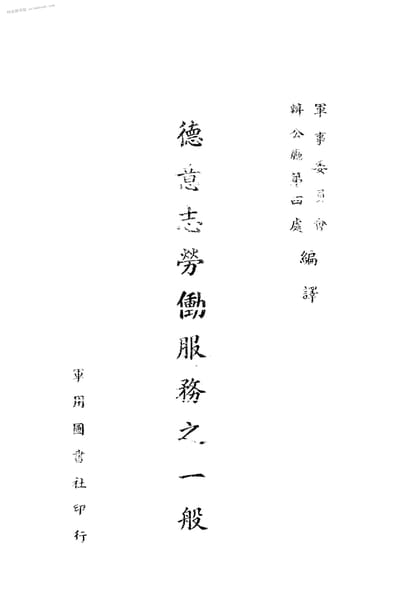 軍事委員會
辦公廳第四處
編譯
德意志勞働服務之一般
軍用圖書社印行